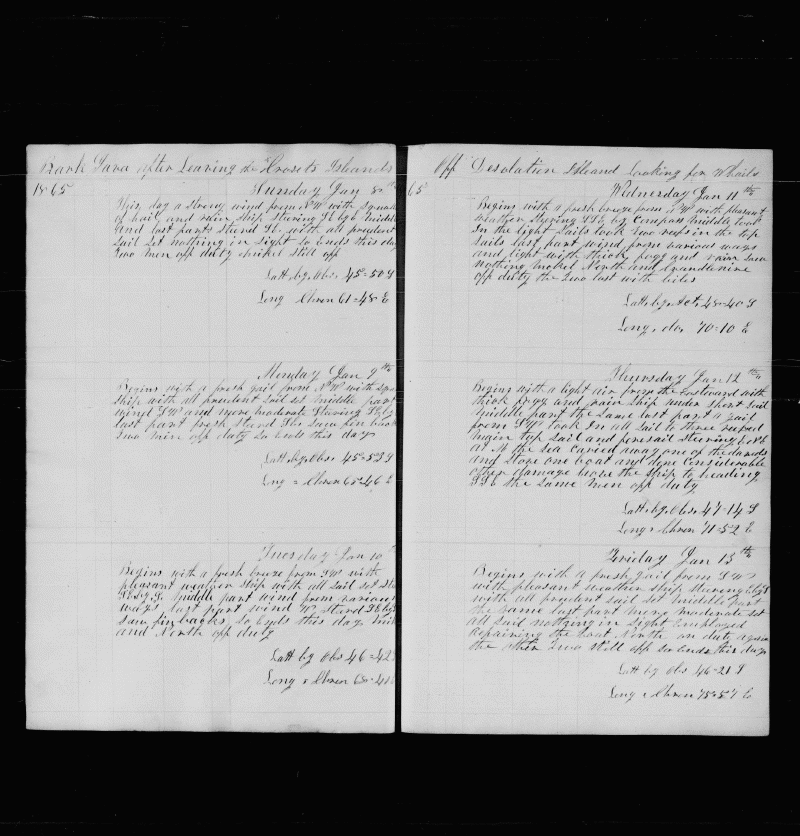 Bark Java after Leaving the Crosets Islands
1865
Sunday Jan 8th
This day a Strong wind from NW with squals
of hail and rain Ship Stering SE by E middle
and last parts Sterd SE with all prudent
Sail Set nothing in Sight So Ends this day
Two men off duty still off
Latt by Obs 45-50 S
Long Chron 61-48 E
Monday Jan 9th
Begins with a fresh gail from NW with
Ship with all prudent Sail Set middle part
wind SW and more moderate Stering
last part fresh Sterd Saw fin back
Two men off duty So Ends this day
Latt by Obs 45-
Long Chron 65-46 E
Tuesday Jan 10
Begins with a fresh breeze from SW with
pleasant weather Ship with all Sail Set
middle part wind from various
ways last part wind W Sterd
Saw fin backs So Ends this day
and North off duty
Latt by Obs 46-42
Long Chron 68-41
Off Desolation Island Looking for Whails
65
Wednesday Jan 11th
Begins with a fresh breeze from NW with pleasant
weather Stering by Compass middle took
In the light Sails took Two reefs in the top
Sails last part wind from various ways
and light with thick fogg and rain Saw
nothing North and
off duty the Two last with biles
Latt by Act 48-40 S
Long do 70-10 E
Thursday Jan 12th
Begins with a light air from the Eastward with
thick fogg and rain Ship under Short Sail
middle part the Same last part a gail
from SW took In all Sail to three reefed
main top Sail and foresail Steering
at M the Sea caried away one of the davids
and Stove one boat and done Considerable
other damage wore the Ship to heading
the Same men off duty
Latt by Obs 47-14 S
Long Chron 71-52 E
Friday Jan 13th
Begins with a fresh gail from SW
with pleasant weather Ship steering
with all prudent Sail Set middle part
the Same last part more moderate Set
all Sail nothing in Sight Employed
repairing the boat North on duty again
the other Two still off So Ends this day
Latt by Obs 46-21 S
Long Chron 75-57 E